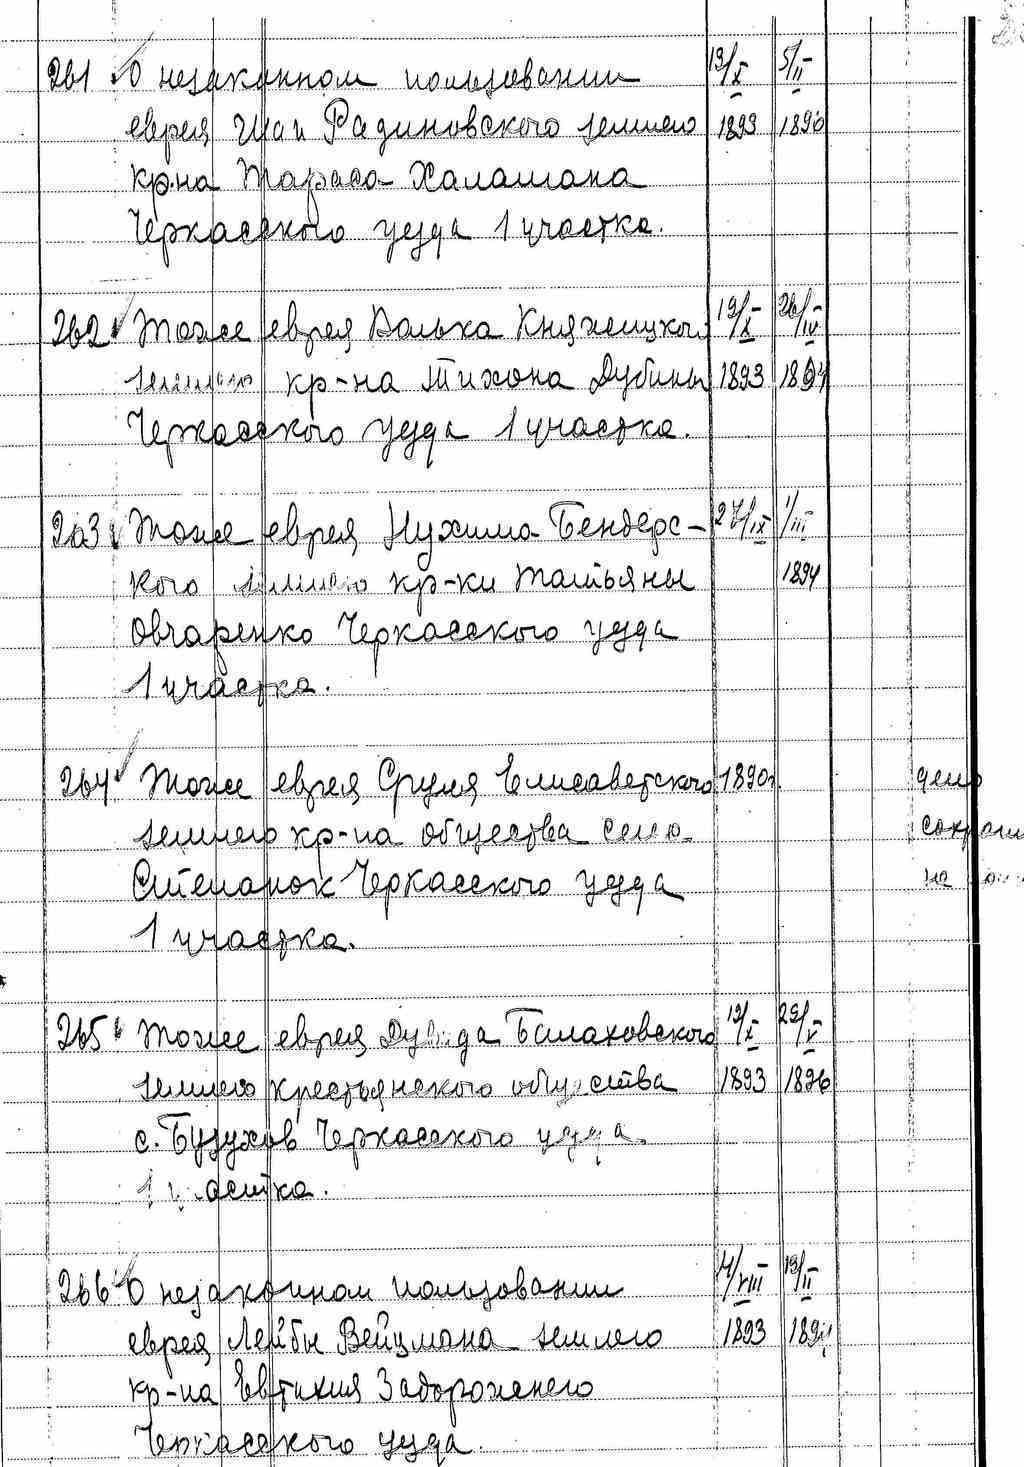 261 О незаконном пользовании 19/X 5/II
еврея Шаи Радиновского землею 1893 1896
кр-на Тараса Халашана
Черкасского уезда 1 участка.
262 Тоже еврея Волька Княжецкого 19/X 26/IV
землею кр-на Тихона Дубины 1893 1894
Черкасского уезда 1 участка.
263 Тоже еврея Нухима Бендерс- 27/IX 1/III
кого землею кр-ки Татьяны 1894
Овчаренко Черкасского уезда
1 участка.
264 Тоже еврея Сруля Елисаветского 1890г. дело
землею кр-на общества села
Степанок Черкасского уезда на
1 участка.
265 Тоже еврея Дувида Балаховского 19/X 29/V
землею крестьянского общества 1893 1896
с. Бузуков Черкасского уезда
1 участка.
266 О незаконном пользовании 4/VIII 19/II
еврея Лейбы Вейцмана землею 1893 1894
кр-на Евтихия Задорожнего
Черкасского уезда.